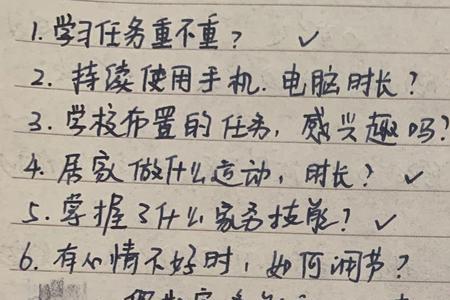 1. 学习任务重不重? ✓
2. 持续使用手机. 电脑时长?
3. 学校布置的任务, 感兴趣吗?
4. 居家做什么运动, 时长? ✓
5. 掌握了什么家务技能? ✓
6. 有心情不好时, 如何调节?